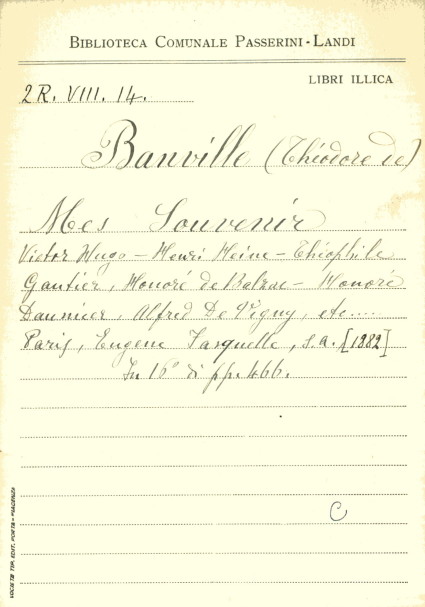 BIBLIOTECA COMUNALE PASSERINI-LANDI
LIBRI ILLICA
2R. VIII. 14.
Banville (Théodore de)
Mes Souvenir
Victor Hugo - Henri Heine - Théophile
Gautier, Honoré de Balzac - Honoré
Daumier, Alfred De Vigny, etc....
Paris, Eugene Fasquelle, s.a. [1882]
In 16° di pp. 466.
C
TIP. EDIT. PORTA - PIACENZA